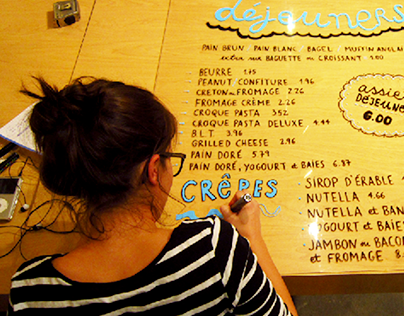 déjeuners
PAIN BRUN, PAIN BLANC, BAGEL, MUFFIN ANGLAIS
extra sur BAGUETTE ou CROISSANT 1.00
BEURRE 1.75
PEANUT CONFITURE 1.96
CRETON ou FROMAGE 2.26
FROMAGE CRÈME 2.26
CROQUE PASTA 3.52
CROQUE PASTA DELUXE 4.44
B.L.T. 3.96
GRILLED CHEESE 2.96
PAIN DORÉ 5.79
PAIN DORÉ, YOGOURT et BAIES 6.87
assie
DÉJEUNE
6.00
CRÊPES
SIROP D'ÉRABLE
NUTELLA 4.66
NUTELLA et BAN
YOGOURT et BAIES
JAMBON ou BACO
et FROMAGE 8.